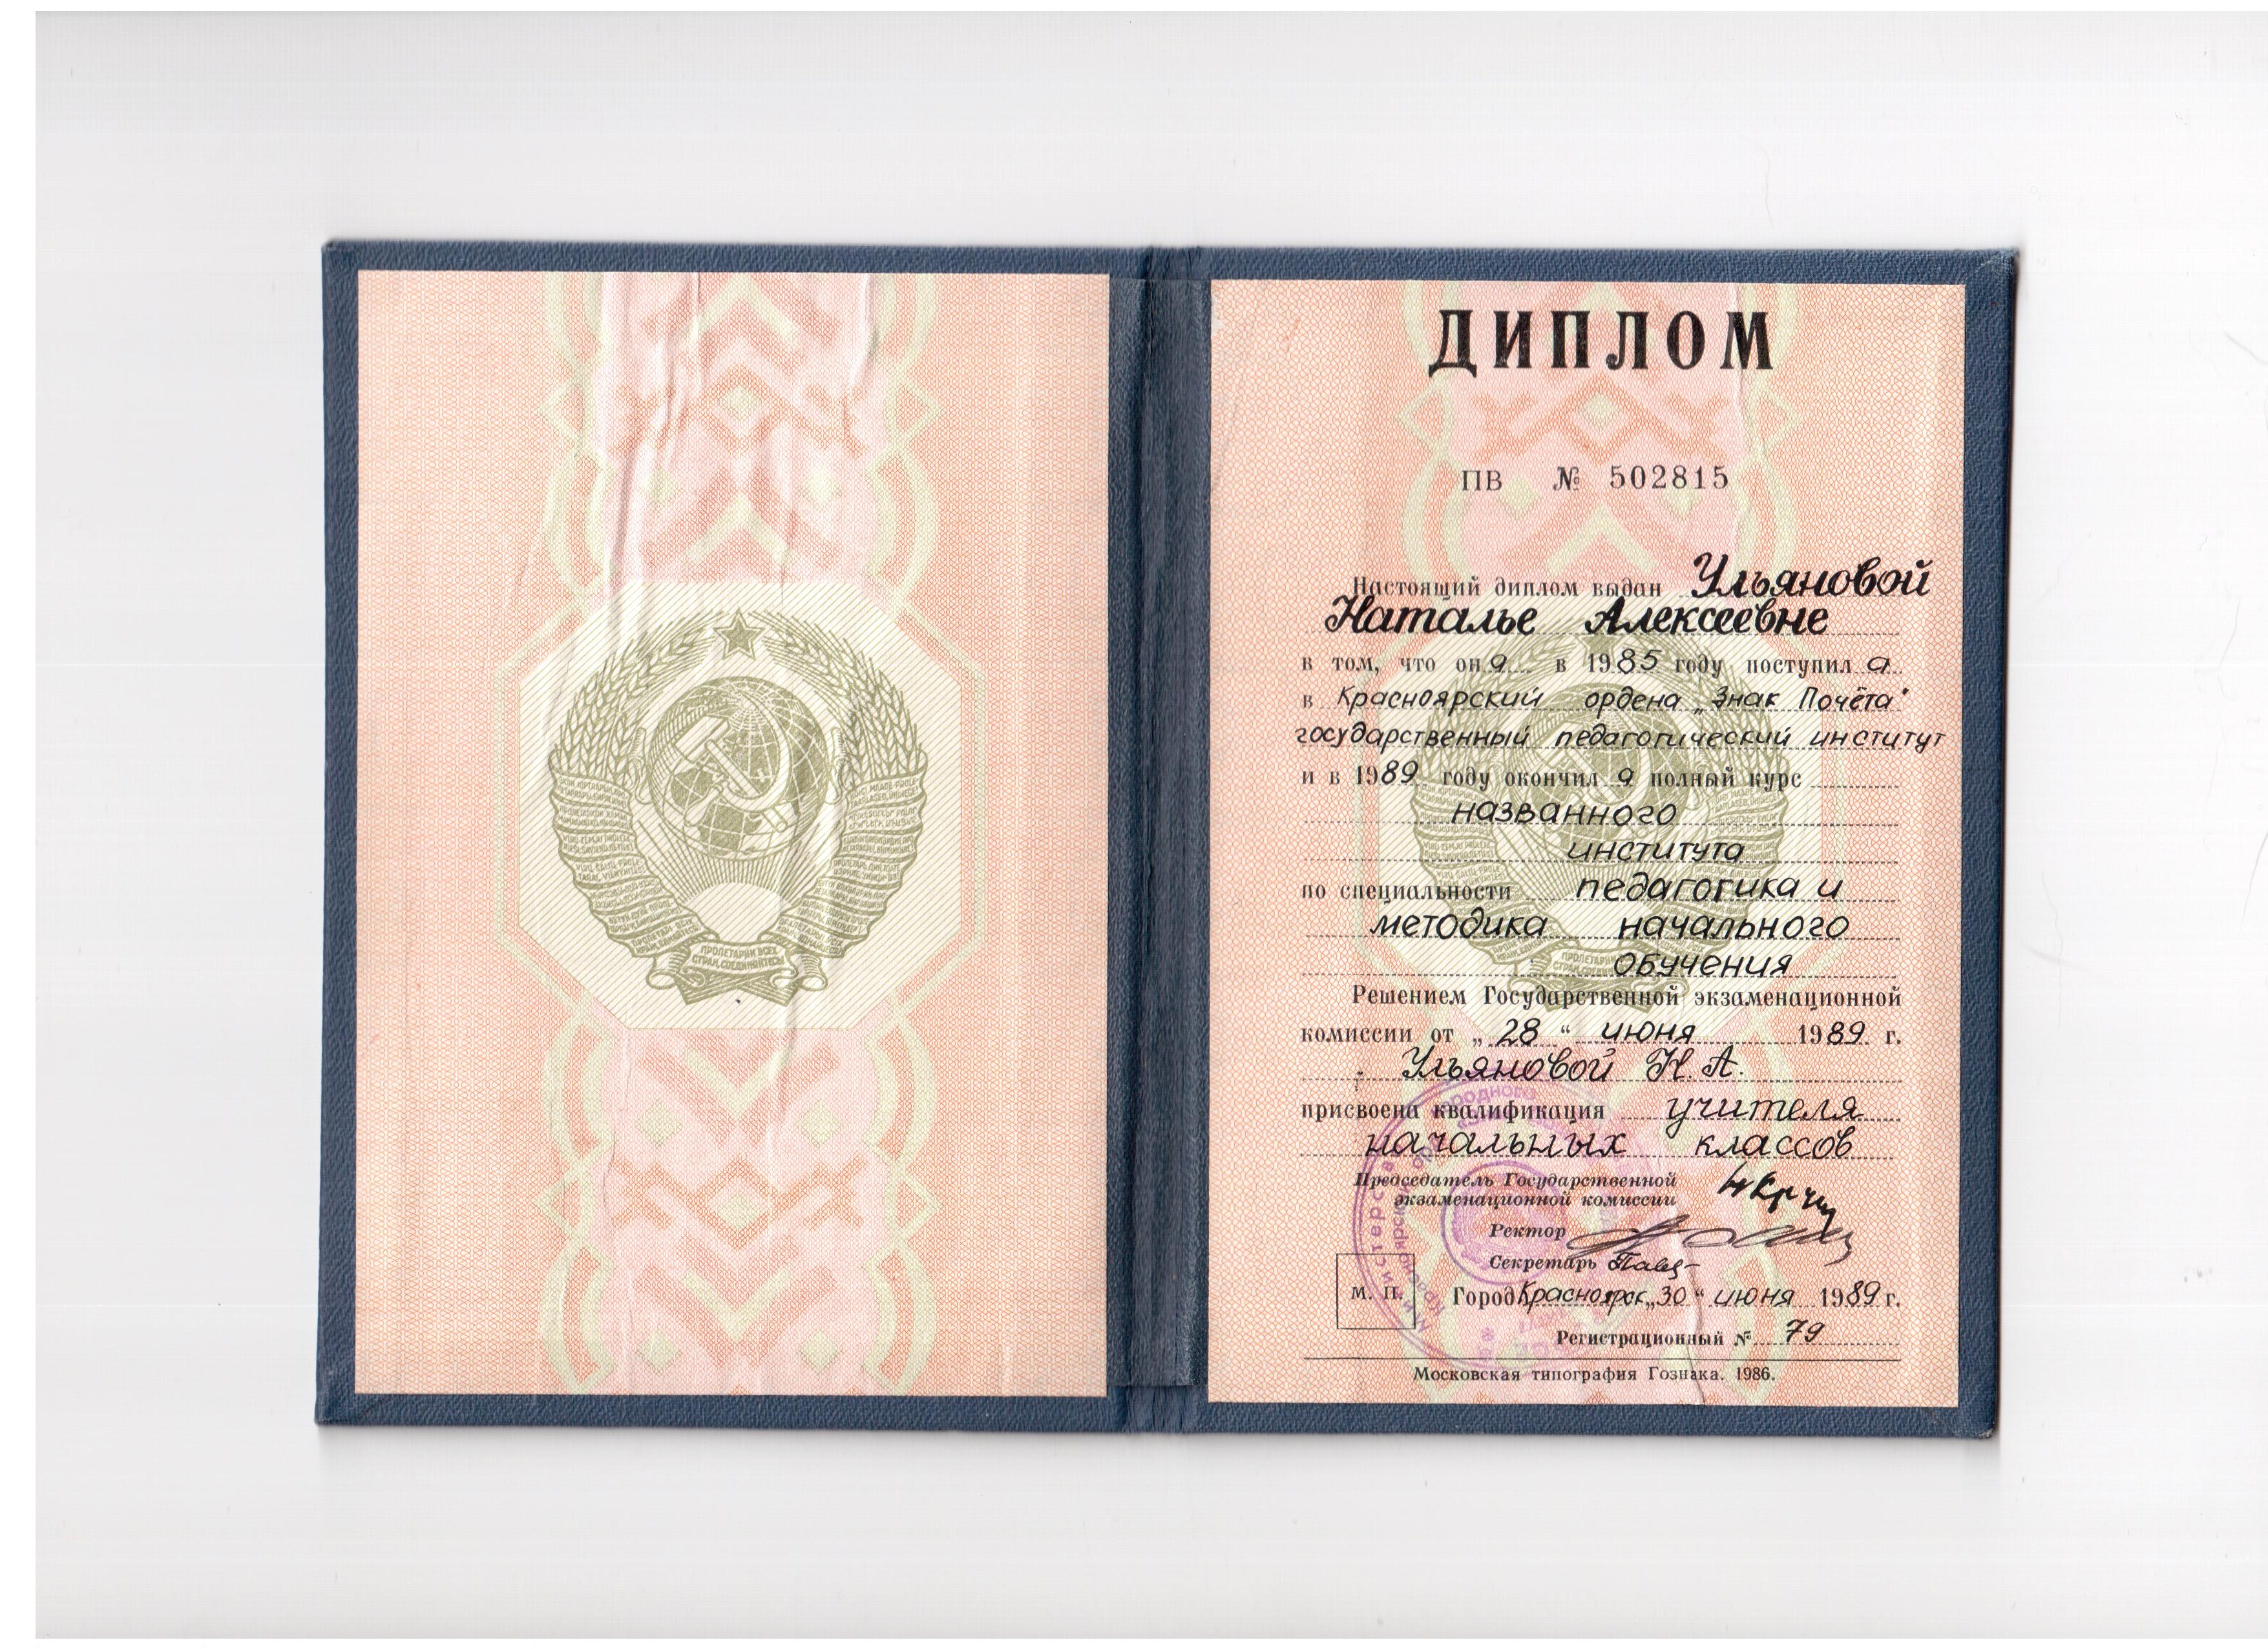 ПРОЛЕТАРИИ ВСЕХ
СТРАН, СОЕДИНЯЙТЕСЬ!
ДИПЛОМ
ПВ № 502815
Настоящий диплом выдан Ульяновой
Наталье Алексеевне
в том, что она в 1985 году поступила
в Красноярский ордена „Знак Почёта"
государственный педагогический институт
и в 1989 году окончила полный курс
названного
института
по специальности педагогика и
методика начального
обучения
Решением Государственной экзаменационной
комиссии от „28“ июня 1989 г.
Ульяновой Н. А.
присвоена квалификация учителя
начальных классов
Председатель Государственной
экзаменационной комиссии
Ректор
Секретарь
М. П. Город Красноярск „30“ июня 1989 г.
Регистрационный № 79
Московская типография Гознака. 1986.